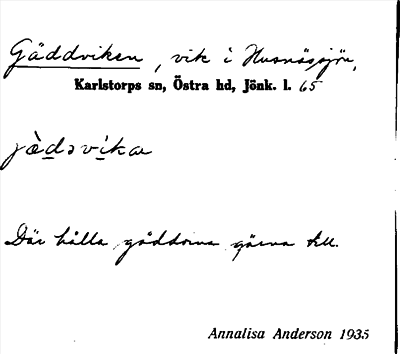 Gäddviken, vik i Husnäsjön,
Karlstorps sn, Östra hd, Jönk. l. 65
jὲdəvíkæ
Där hålla gäddorna gärna till.
Annalisa Anderson 1935